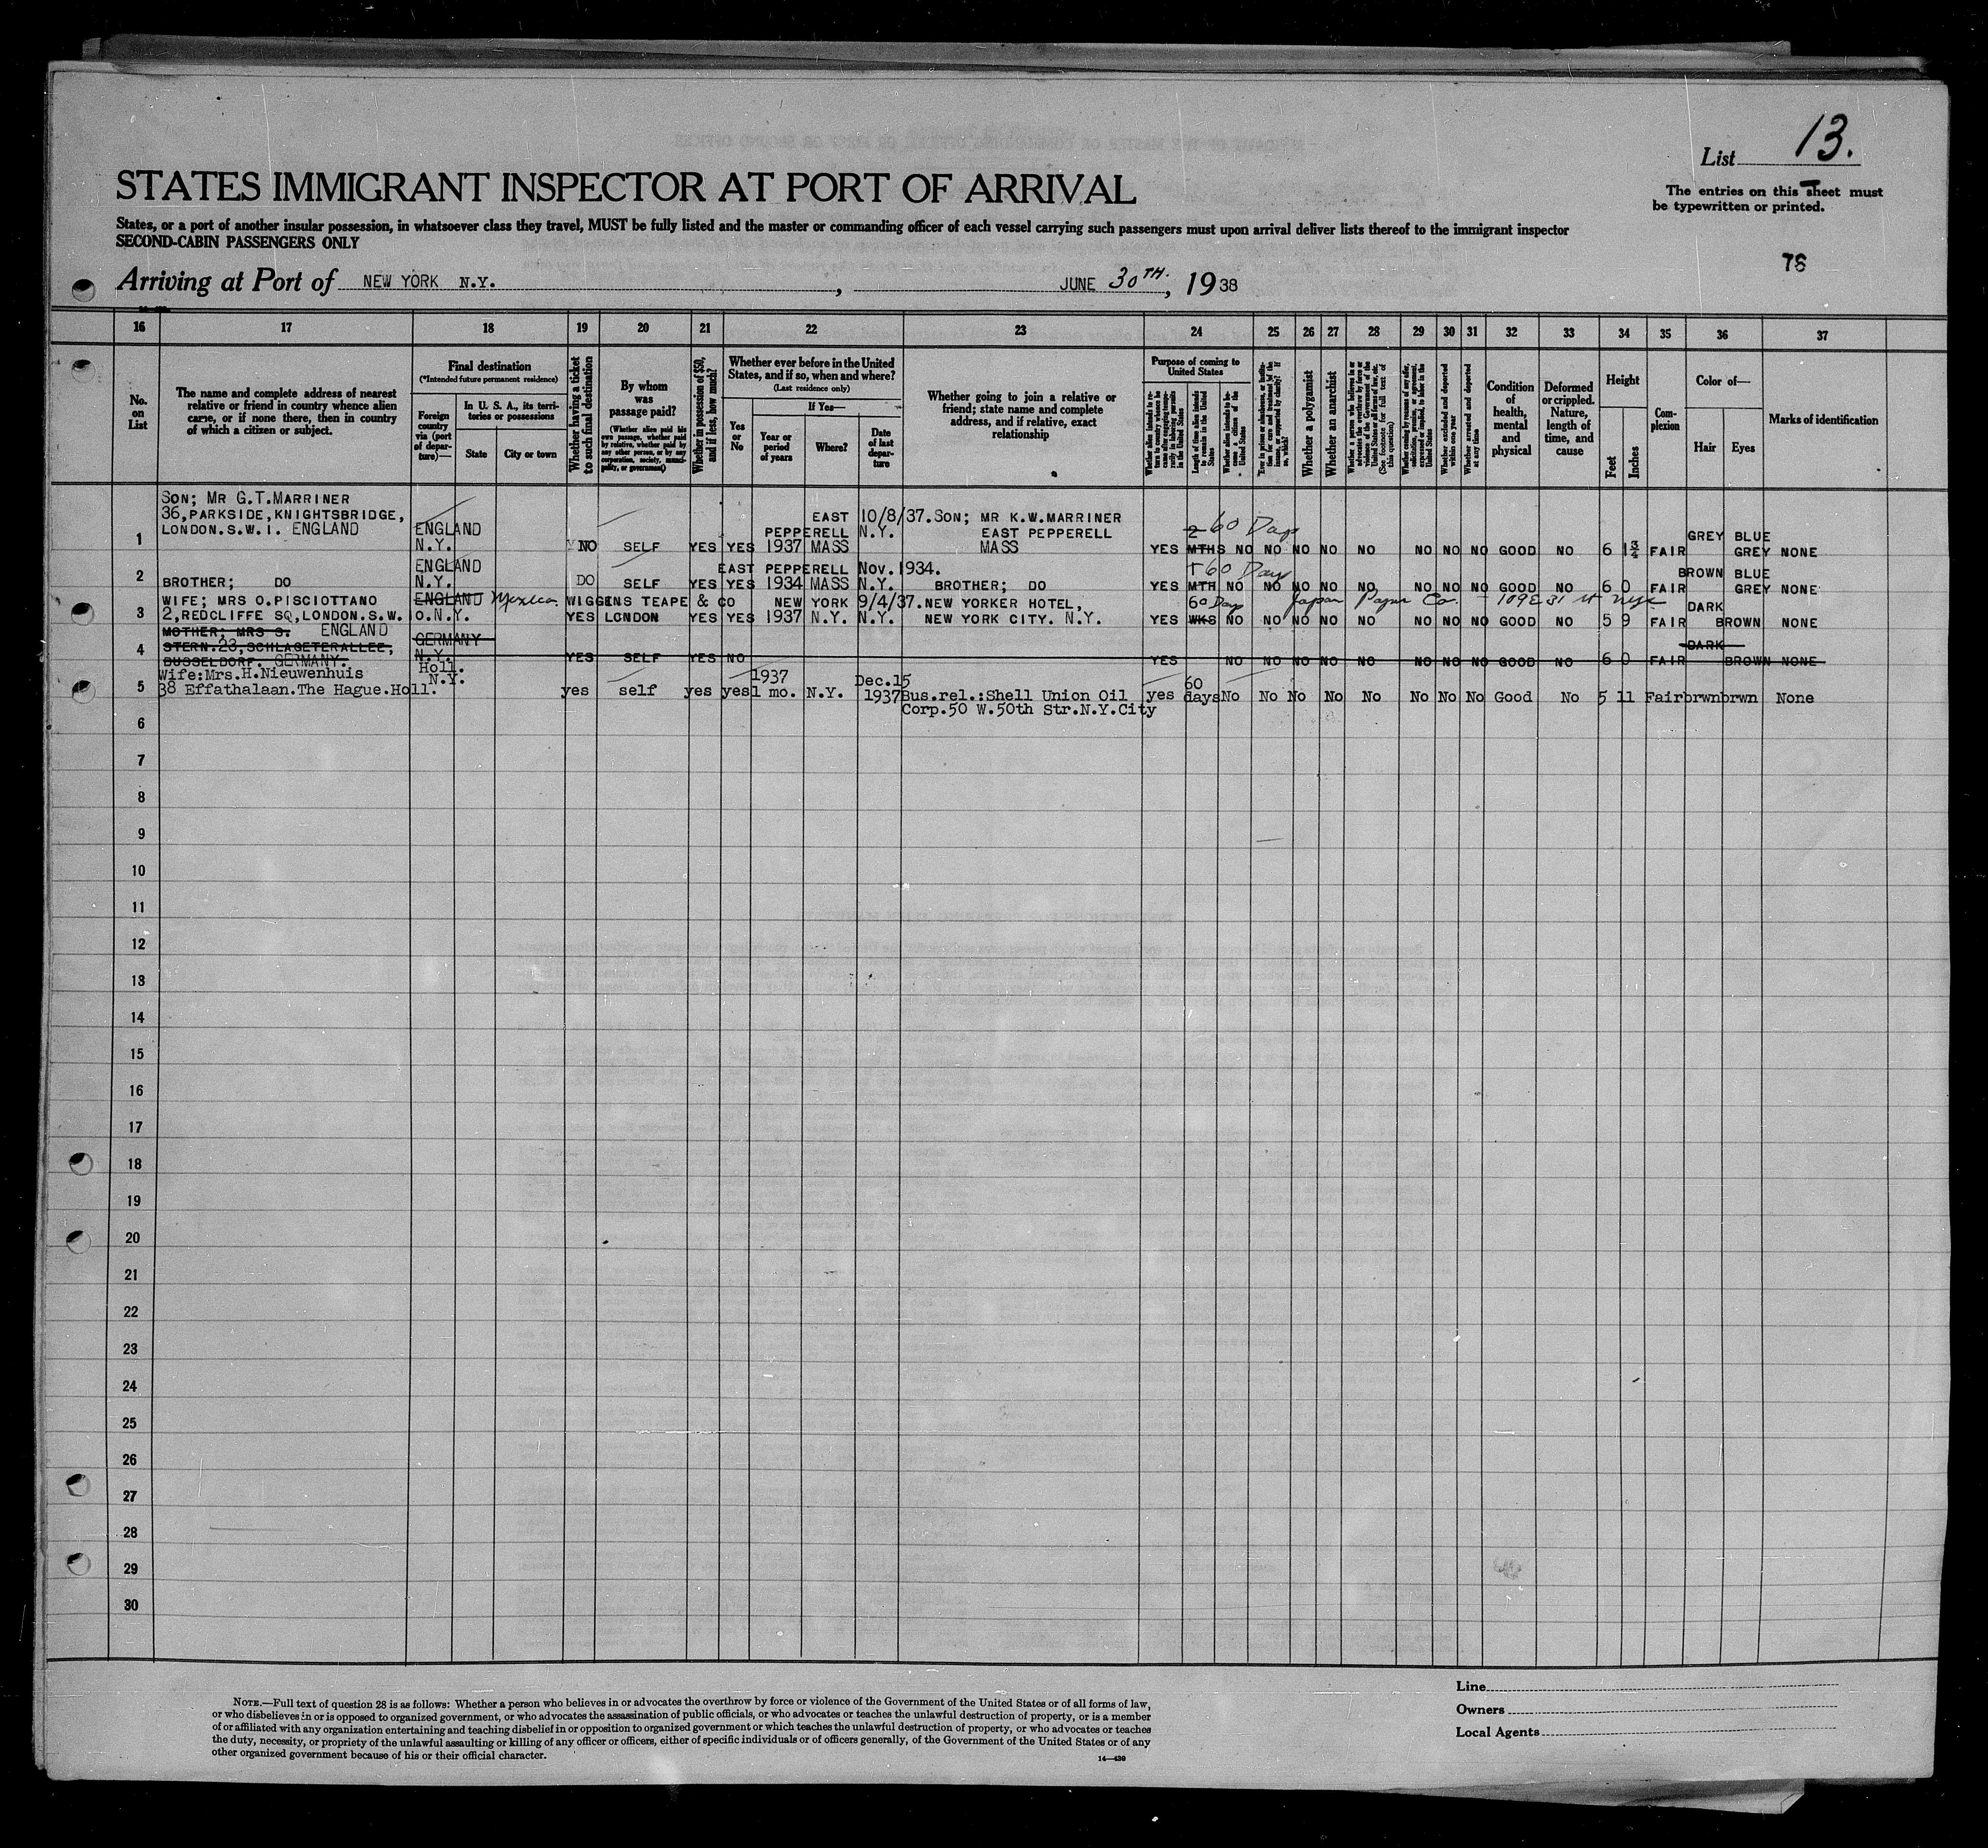 List 13.
STATES IMMIGRANT INSPECTOR AT PORT OF ARRIVAL
The entries on this sheet must
be typewritten or printed.
States, or a port of another insular possession, in whatsoever class they travel, MUST be fully listed and the master or commanding officer of each vessel carrying such passengers must upon arrival deliver lists thereof to the immigrant inspector
SECOND-CABIN PASSENGERS ONLY
78
Arriving at Port of NEW YORK N.Y., JUNE 30TH., 1938
16 17 18 19 20 21 22 23 24 25 26 27 28 29 30 31 32 33 34 35 36 37
No. on List
The name and complete address of nearest
relative or friend in country whence alien
came, or if none there, then in country
of which a citizen or subject.
Final destination
(*Intended future permanent residence)
Foreign country via (port of departure)—
In U. S. A., its territories or possessions
State
City or town
Whether having a ticket to such final destination
By whom was passage paid?
(Whether alien paid his own passage, whether paid by relative, whether paid by any other person, or by any corporation, society, municipality, or government)
Whether in possession of $50, and if less, how much?
Whether ever before in the United States, and if so, when and where?
(Last residence only)
Yes or No
If Yes—
Year or period of years
Where?
Date of last departure
Whether going to join a relative or
friend; state name and complete
address, and if relative, exact
relationship
Purpose of coming to United States
Whether alien intends to return to country whence he came after engaging temporarily in laboring pursuits in the United States
Length of time alien intends to remain in the United States
Whether alien intends to become a citizen of the United States
Whether a polygamist
Whether an anarchist
(See footnote for full text of this question)
Whether excluded and deported within one year
Whether arrested and deported at any time
Condition of health, mental and physical
Deformed or crippled. Nature, length of time, and cause
Height
Feet
Inches
Complexion
Color of—
Hair
Eyes
Marks of identification
SON; MR G.T.MARRINER
36,PARKSIDE,KNIGHTSBRIDGE, EAST 10/8/37. SON; MR K.W.MARRINER
LONDON.S.W.1. ENGLAND ENGLAND PEPPERELL N.Y. EAST PEPPERELL 2 60 Days GREY BLUE
1 N.Y. NO SELF YES YES 1937 MASS MASS YES MTHS NO NO NO NO NO NO NO NO GOOD NO 6 1¾ FAIR GREY NONE
ENGLAND EAST PEPPERELL Nov.1934. 60 Days BROWN BLUE
2 BROTHER; DO N.Y. DO SELF YES YES 1934 MASS N.Y. BROTHER; DO YES MTH NO NO NO NO NO NO NO NO GOOD NO 6 0 FAIR GREY NONE
WIFE; MRS O.PISCIOTTANO ENGLAND Mexico WIGGINS TEAPE & CO NEW YORK 9/4/37. NEW YORKER HOTEL, 60 Days Japan Paper Co. - 109 E 31 st NYC DARK
3 2,REDCLIFFE SQ,LONDON.S.W.10. N.Y. YES LONDON YES YES 1937 N.Y. N.Y. NEW YORK CITY. N.Y. YES WKS NO NO NO NO NO NO NO NO GOOD NO 5 9 FAIR BROWN NONE
MOTHER; MRS S. ENGLAND
4 STERN.23,SCHLAGETERALLEE, GERMANY DARK
DUSSELDORF. GERMANY. N.Y. YES SELF YES NO YES NO NO NO NO NO NO NO NO GOOD NO 6 0 FAIR BROWN NONE
Wife:Mrs.H.Nieuwenhuis Holl. N.Y. 1937 Dec.15 60
5 38 Effathalaan.The Hague.Holl. yes self yes yes 1 mo. N.Y. 1937 Bus.rel.:Shell Union Oil yes days No No No No No No No No Good No 5 11 Fair brwn brwn None
Corp.50 W.50th Str.N.Y.City
6
7
8
9
10
11
12
13
14
15
16
17
18
19
20
21
22
23
24
25
26
27
28
29
30
NOTE.—Full text of question 28 is as follows: Whether a person who believes in or advocates the overthrow by force or violence of the Government of the United States or of all forms of law,
or who disbelieves in or is opposed to organized government, or who advocates the assassination of public officials, or who advocates or teaches the unlawful destruction of property, or is a member
of or affiliated with any organization entertaining and teaching disbelief in or opposition to organized government or which teaches the unlawful destruction of property, or who advocates or teaches
the duty, necessity, or propriety of the unlawful assaulting or killing of any officer or officers, either of specific individuals or of officers generally, of the Government of the United States or of any
other organized government because of his or their official character.
14—430
Line
Owners
Local Agents